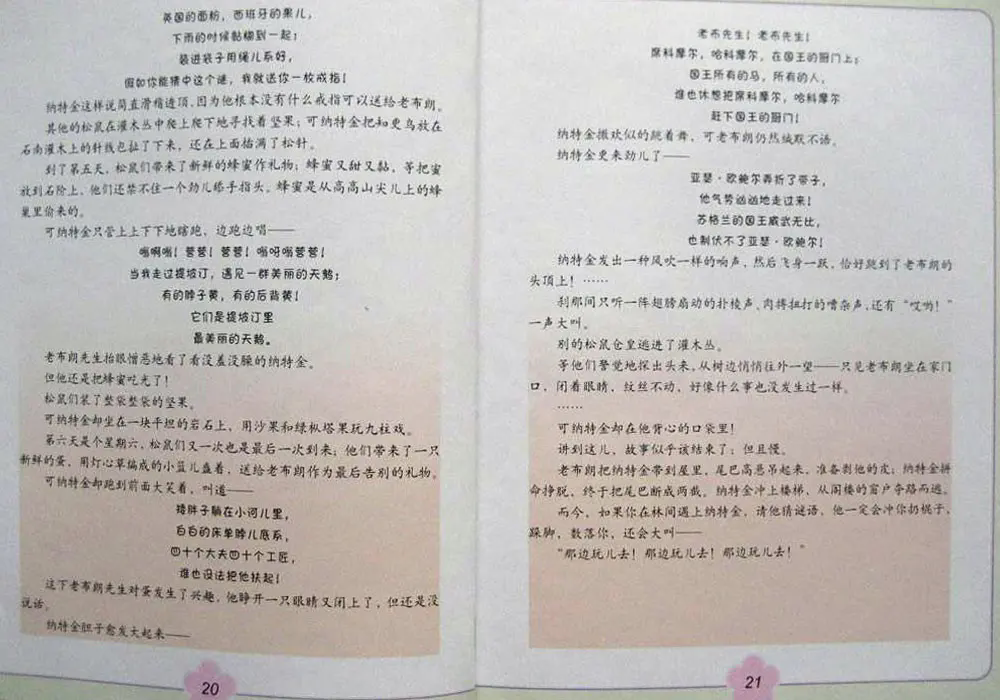 英国的面粉，西班牙的果儿，
下雨的时候黏糊到一起；
装进袋子用绳儿系好，
假如你能猜中这个谜，我就送你一枚戒指！
纳特金这样说简直滑稽透顶，因为他根本没有什么戒指可以送给老布朗。
其他的松鼠在灌木丛中爬上爬下地寻找着坚果；可纳特金把知更鸟放在
石南灌木上的针线包扯了下来，还在上面插满了松针。
到了第五天，松鼠们带来了新鲜的蜂蜜作礼物；蜂蜜又甜又黏，等把蜜
放到石阶上，他们还禁不住一个劲儿舔手指头。蜂蜜是从高高山尖儿上的蜂
巢里偷来的。
可纳特金只管上上下下地瞎跑，边跑边唱——
嗡啊嗡！营营！营营！嗡呀嗡营营！
当我走过提坡汀，遇见一群美丽的天鹅；
有的脖子黄，有的后背黄！
它们是提坡汀里
最美丽的天鹅。
老布朗先生抬眼憎恶地看了看没羞没臊的纳特金。
但他还是把蜂蜜吃光了！
松鼠们装了整袋整袋的坚果。
可纳特金却坐在一块平坦的岩石上，用沙果和绿枞塔果玩九柱戏。
第六天是个星期六，松鼠们又一次也是最后一次到来；他们带来了一只
新鲜的蛋，用灯心草编成的小篮儿盛着，送给老布朗作为最后告别的礼物。
可纳特金却跑到前面大笑着，叫道——
矮胖子躺在小河儿里，
白白的床单脖儿底系，
四十个大夫四十个工匠，
谁也没法把他扶起！
这下老布朗先生对蛋发生了兴趣，他睁开一只眼睛又闭上了，但还是没
说话。
纳特金胆子愈发大起来——
20
老布先生！老布先生！
席科摩尔，哈科摩尔，在国王的厨门上；
国王所有的马，所有的人，
谁也休想把席科摩尔，哈科摩尔
赶下国王的厨门！
纳特金撒欢似的跳着舞，可老布朗仍然缄默不语。
纳特金更来劲儿了——
亚瑟·欧鲍尔弄折了带子，
他气势汹汹地走过来！
苏格兰的国王威武无比，
也制伏不了亚瑟·欧鲍尔！
纳特金发出一种风吹一样的响声，然后飞身一跃，恰好跳到了老布朗的
头顶上！……
刹那间只听一阵翅膀扇动的扑棱声、肉搏扭打的嘈杂声，还有“哎哟！”
一声大叫。
别的松鼠仓皇逃进了灌木丛。
等他们警觉地探出头来，从树边悄悄往外一望——只见老布朗坐在家门
口，闭着眼睛，纹丝不动，好像什么事也没发生过一样。
……
可纳特金却在他背心的口袋里！
讲到这儿，故事似乎该结束了；但且慢。
老布朗把纳特金带到屋里，尾巴高悬吊起来，准备剥他的皮；纳特金拼
命挣脱，终于把尾巴断成两截，纳特金冲上楼梯，从阁楼的窗户夺路而逃。
而今，如果你在林间遇上纳特金，请他猜谜语，他一定会冲你扔棍子，
跺脚，数落你，还会大叫——
“那边玩儿去！那边玩儿去！那边玩儿去！”
21